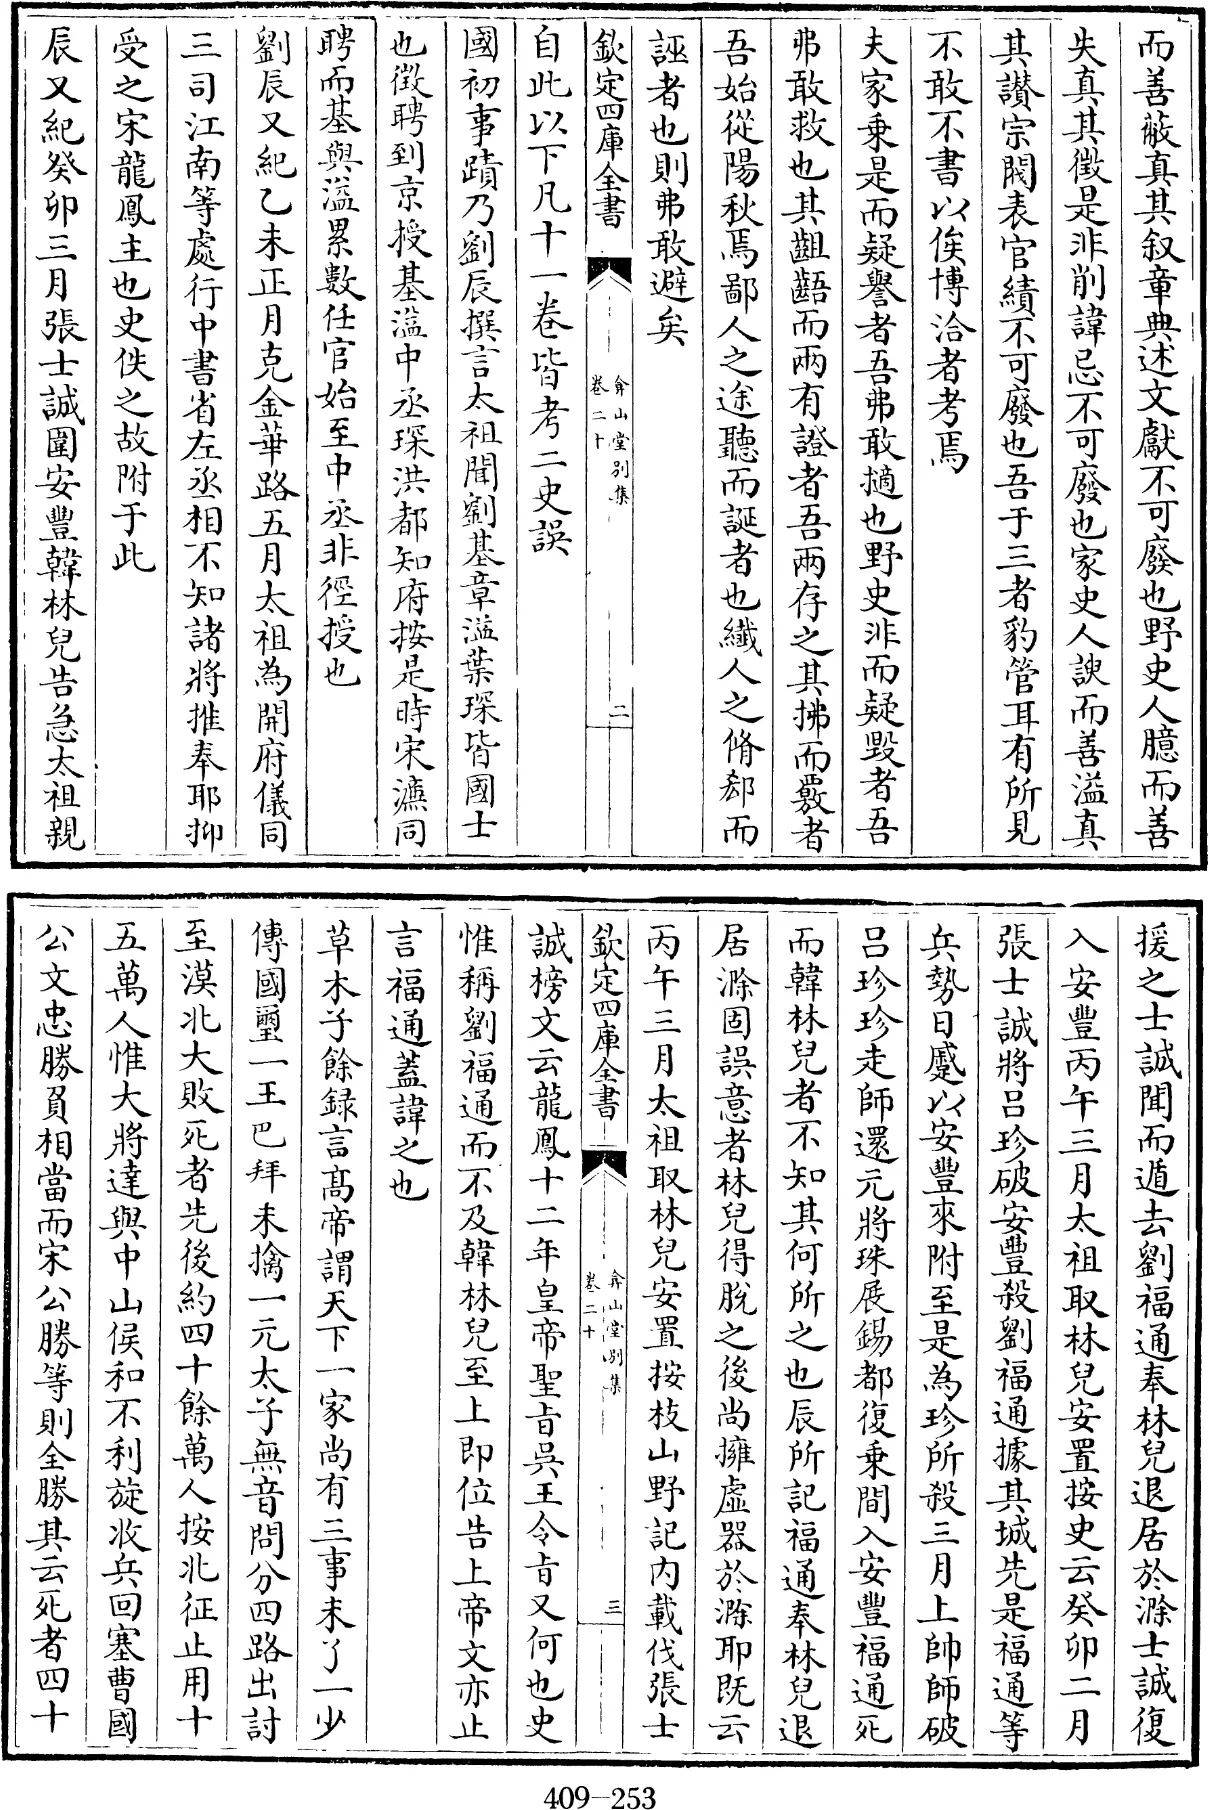 而善蔽真其叙章典述文獻不可廢也野史人臆而善
失真其徵是非削諱忌不可廢也家史人諛而善溢真
其讃宗閥表官績不可廢也吾于三者豹管耳有所見
不敢不書以俟博洽者考焉
夫家乗是而疑譽者吾弗敢擿也野史非而疑毀者吾
弗敢救也其齟齬而兩有證者吾兩存之其拂而覈者
吾始從陽秋焉鄙人之途聽而誕者也纖人之脩郄而
誣者也則弗敢避矣
欽定四庫全書
弇山堂别集
卷二十
二
自此以下凡十一卷皆考二史誤
國初事蹟乃劉辰撰言太祖聞劉基章溢葉琛皆國士
也徵聘到京授基溢中丞琛洪都知府按是時宋濂同
聘而基與溢累數任官始至中丞非徑授也
劉辰又紀乙未正月克金華路五月太祖為開府儀同
三司江南等處行中書省左丞相不知諸將推奉耶抑
受之宋龍鳳主也史佚之故附于此
辰又紀癸卯三月張士誠圍安豐韓林兒告急太祖親
援之士誠聞而遁去劉福通奉林兒退居於滁士誠復
入安豐丙午三月太祖取林兒安置按史云癸卯二月
張士誠將吕珍破安豐殺劉福通據其城先是福通等
兵勢日蹙以安豐來附至是為珍所殺三月上帥師破
吕珍珍走師還元將珠展錫都復乗間入安豐福通死
而韓林兒者不知其何所之也辰所記福通奉林兒退
居滁固誤意者林兒得脫之後尚擁虛器於滁耶既云
丙午三月太祖取林兒安置按枝山野記内載伐張士
欽定四庫全書
弇山堂别集
卷二十
三
誠榜文云龍鳳十二年皇帝聖旨吳王令旨又何也史
惟稱劉福通而不及韓林兒至上即位告上帝文亦止
言福通蓋諱之也
草木子餘録言髙帝謂天下一家尚有三事未了一少
傳國璽一王巴拜未擒一元太子無音問分四路出討
至漠北大敗死者先後約四十餘萬人按北征止用十
五萬人惟大將達與中山侯和不利旋收兵回塞曹國
公文忠勝負相當而宋公勝等則全勝其云死者四十
409-253